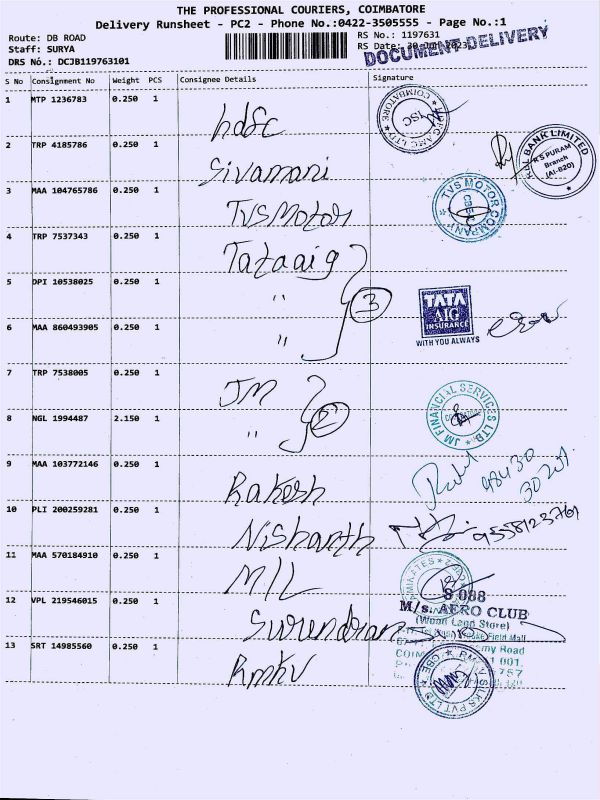 THE PROFESSIONAL COURIERS, COIMBATORE
Delivery Runsheet - PC2 - Phone No.:0422-3505555 - Page No.:1
Route: DB ROAD
Staff: SURYA
DRS No.: DCJB119763101
RS No.: 1197631
RS Date: 30-Jun-2023
DOCUMENT DELIVERY
S No Consignment No Weight PCS Consignee Details Signature
1 MTP 1236783 0.250 1 hdfc
COIMBATORE
ISC
2 TRP 4185786 0.250 1 Sivamani
BANK LIMITED
R S PURAM
Branch
(AI-820)
3 MAA 104765786 0.250 1 TVS Motor
TVS MOTOR COMPANY
4 TRP 7537343 0.250 1 Tata aig
5 DPI 10538025 0.250 1 "
3
TATA
AIG
INSURANCE
WITH YOU ALWAYS
6 MAA 860493905 0.250 1 "
7 TRP 7538005 0.250 1 JM
JM FINANCIAL SERVICES LTD.
8 NGL 1994487 2.150 1 "
2
9 MAA 103772146 0.250 1 Rakesh
98430
30201
10 PLI 200259281 0.250 1 Nishanth
9558123761
11 MAA 570184910 0.250 1 M/L
S 088
M/s. AERO CLUB
(Wood Land Store)
12 VPL 219546015 0.250 1 Surendran
Field Mall
my Road
1 001.
757
13 SRT 14985560 0.250 1 Rmkv
SILKS PVT LTD
CBE